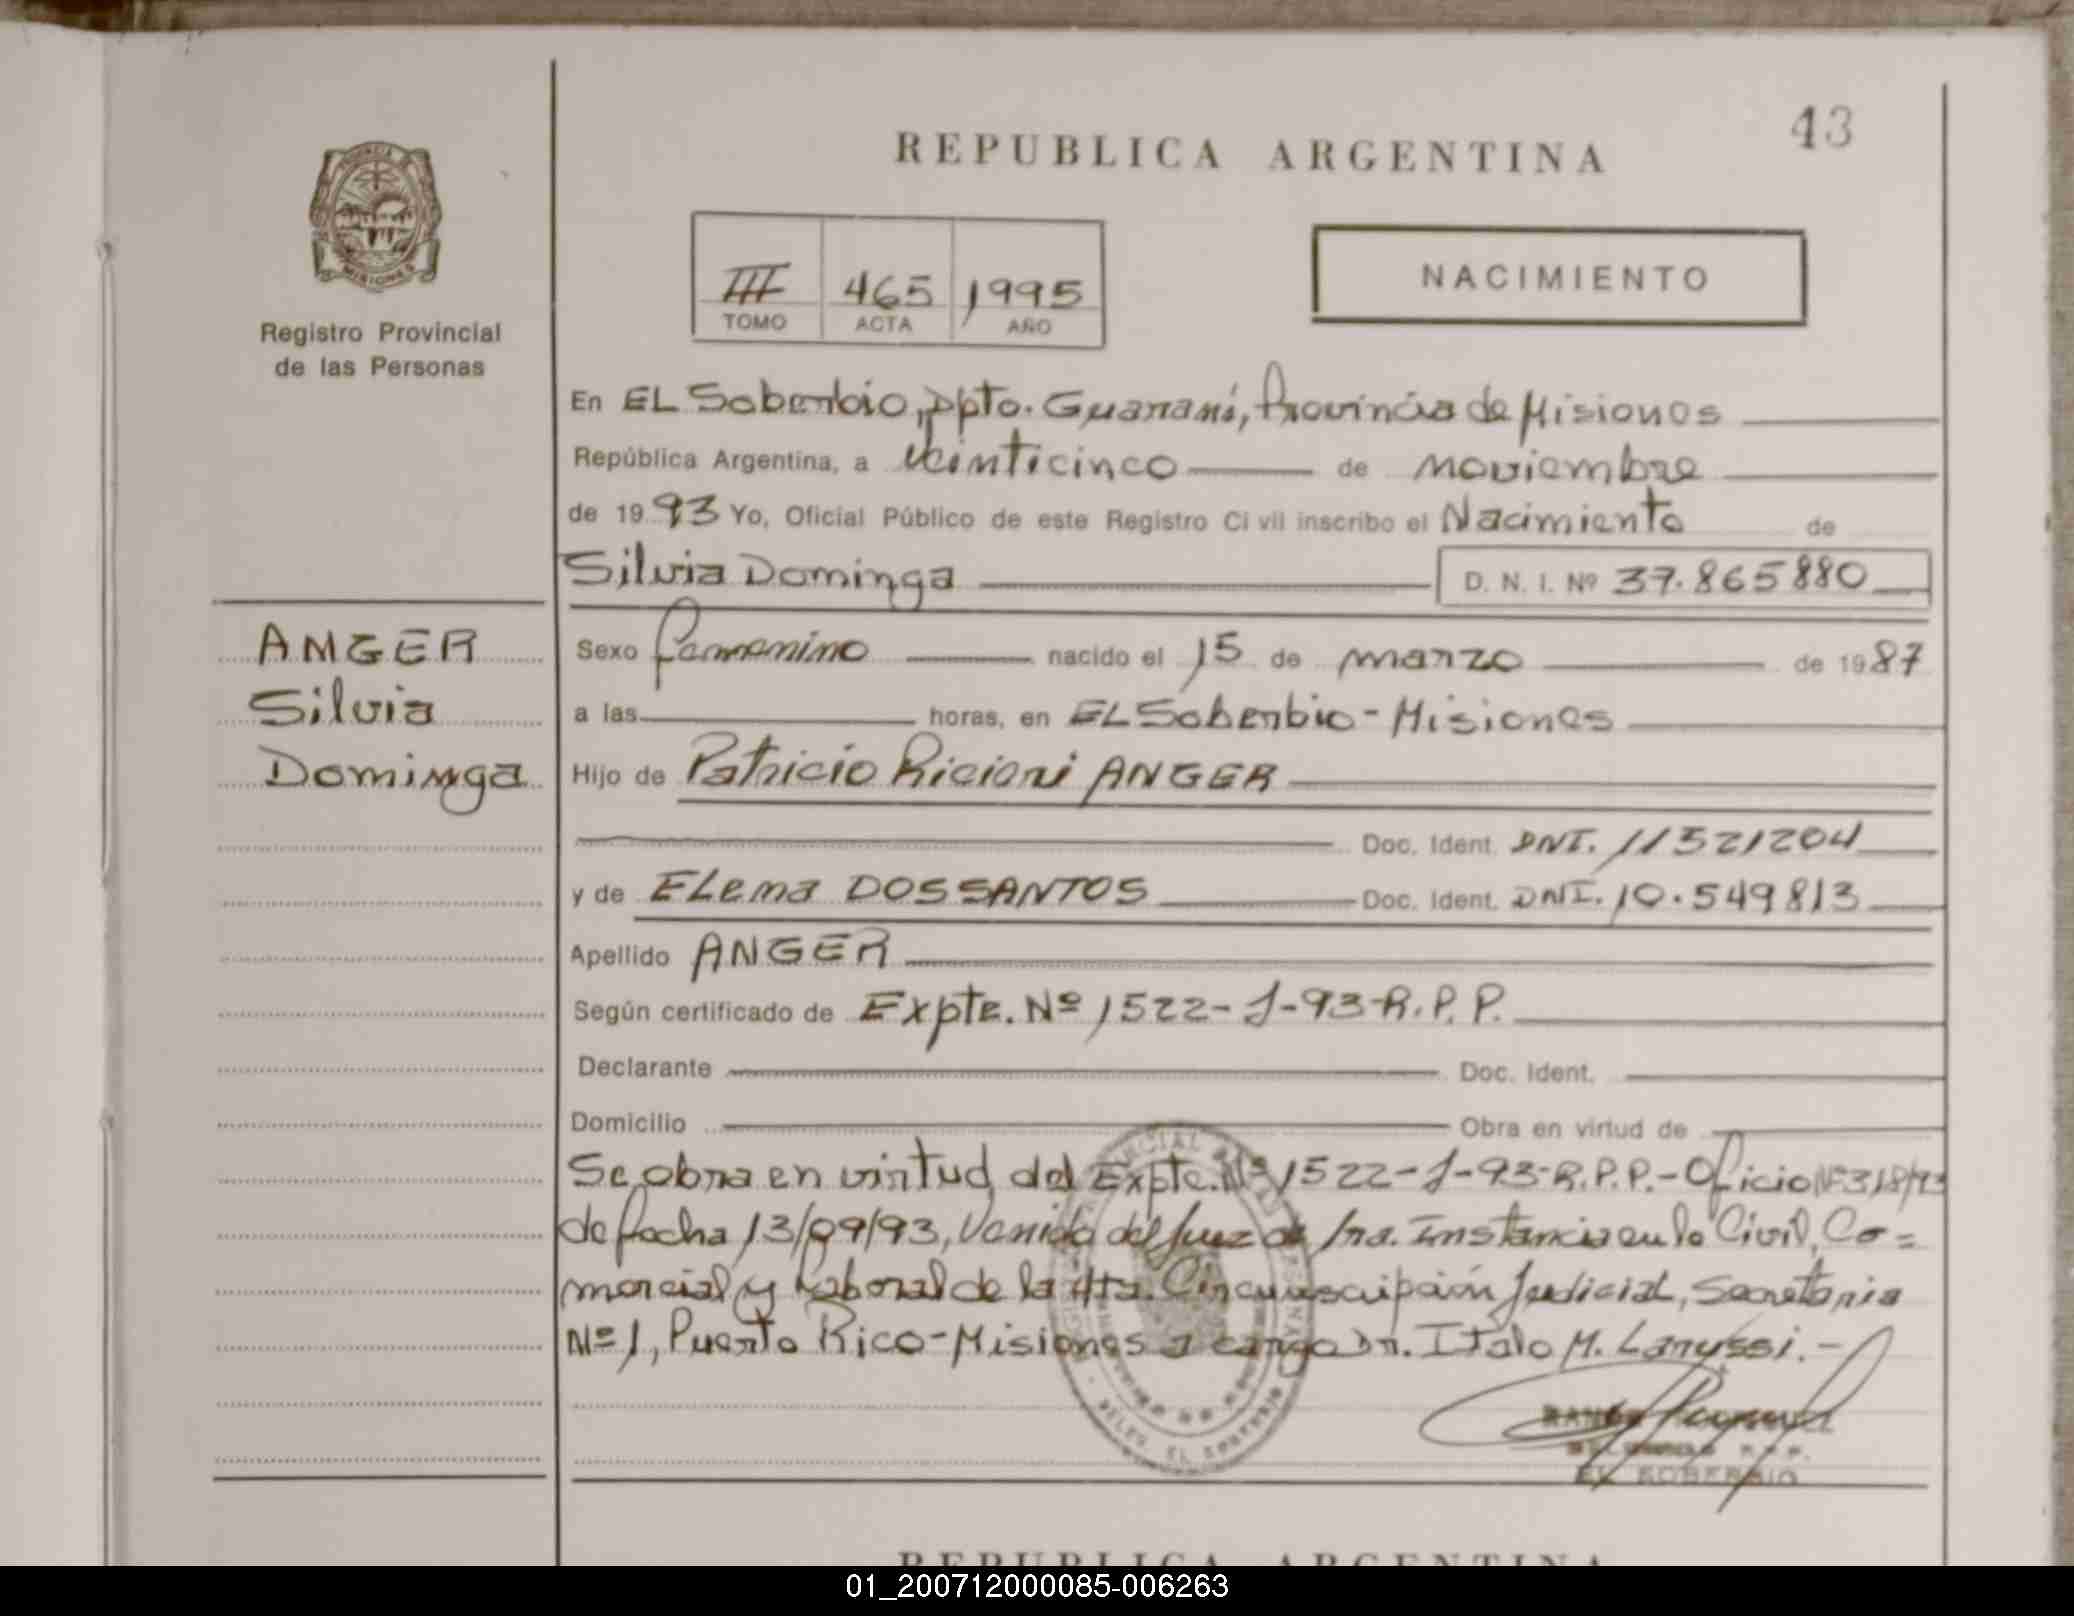 43
REPUBLICA ARGENTINA
III 465 1995
TOMO ACTA AÑO
NACIMIENTO
MISIONES
Registro Provincial
de las Personas
En EL Soberbio, Dpto. Guaraní, Provincia de Misiones
República Argentina, a veinticinco de noviembre
de 1993 Yo, Oficial Público de este Registro Ci vil inscribo el Nacimiento de
Silvia Dominga D. N. I. Nº 37.865880
ANGER
Silvia
Dominga
Sexo femenino nacido el 15 de marzo de 1987
a las horas, en EL Soberbio - Misiones
Hijo de Patricio Ricieri ANGER
Doc. Ident. DNI. 11521204
y de ELena DOSSANTOS Doc. Ident. DNI. 10.549813
Apellido ANGER
Según certificado de Expte. Nº 1522-J-93-R.P.P.
Declarante Doc. Ident.
Domicilio Obra en virtud de
Se obra en virtud del Expte. Nº 1522-J-93-R.P.P.- Oficio Nº 318/93
de fecha 13/09/93, Venido del Juez de 1ra. Instancia en lo Civil, Co=
mercial y Laboral de la 4ta. Circunscripción Judicial, Secretaria
Nº 1, Puerto Rico - Misiones a cargo Dr. Italo M. Lanussi.-
EL SOBERBIO
REPUBLICA ARGENTINA
01_200712000085-006263